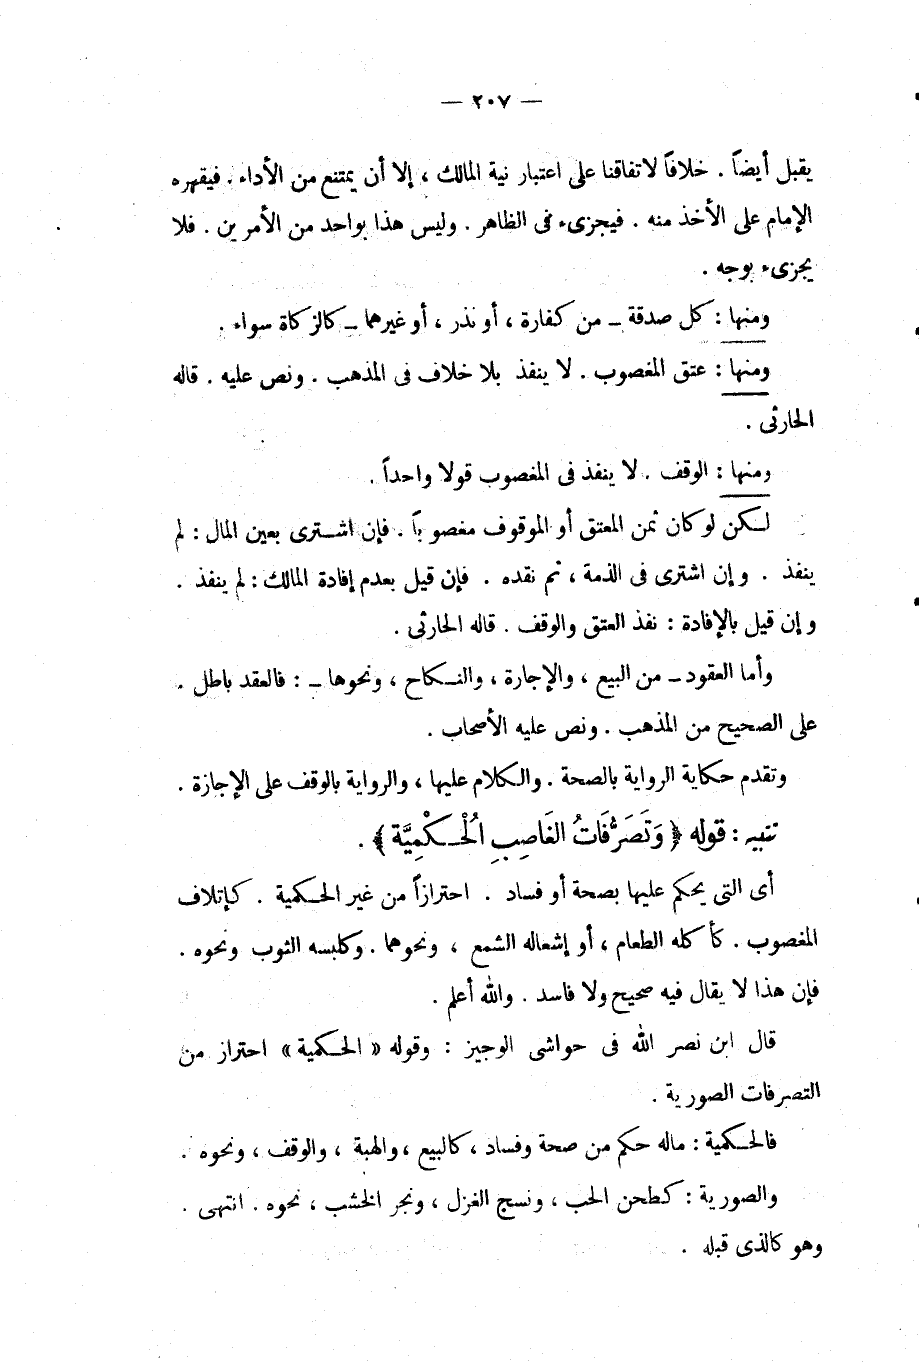 — ٢٠٧ —
يقبل أيضاً . خلافاً لاتفاقنا على اعتبار نية المالك ، إلا أن يمتنع من الأداء . فيقهره
الإمام على الأخذ منه . فيجزىء فى الظاهر . وليس هذا بواحد من الأمرين . فلا
يجزىء بوجه .
ومنها : كل صدقة ــ من كفارة ، أو نذر ، أو غيرهما ــ كالزكاة سواء .
ومنها : عتق المغصوب . لا ينفذ بلا خلاف فى المذهب . ونص عليه . قاله
الحارثى .
ومنها : الوقف . لا ينفذ فى المغصوب قولا واحداً .
لكن لو كان ثمن المعتق أو الموقوف مغصوباً . فإن اشترى بعين المال : لم
ينفذ . وإن اشترى فى الذمة ، ثم نقده . فإن قيل بعدم إفادة المالك : لم ينفذ .
وإن قيل بالإفادة : نفذ العتق والوقف . قاله الحارثى .
وأما العقود ــ من البيع ، والإجارة ، والنكاح ، ونحوها ــ : فالعقد باطل .
على الصحيح من المذهب . ونص عليه الأصحاب .
وتقدم حكاية الرواية بالصحة . والكلام عليها ، والرواية بالوقف على الإجازة .
تنبيه : قوله ﴿ وَتَصَرُّفَاتُ الغَاصِبِ الُحْكْمِيَّة ﴾ .
أى التى يحكم عليها بصحة أو فساد . احترازاً من غير الحكمية . كإتلاف
المغصوب . كأكله الطعام ، أو إشعاله الشمع ، ونحوهما . وكلبسه الثوب ونحوه .
فإن هذا لا يقال فيه صحيح ولا فاسد . والله أعلم .
قال ابن نصر الله فى حواشى الوجيز : وقوله « الحكمية » احتراز من
التصرفات الصورية .
فالحكمية : ماله حكم من صحة وفساد ، كالبيع ، والهبة ، والوقف ، ونحوه .
والصورية : كطحن الحب ، ونسج الغزل ، ونجر الخشب ، نحوه . انتهى .
وهو كالذى قبله .